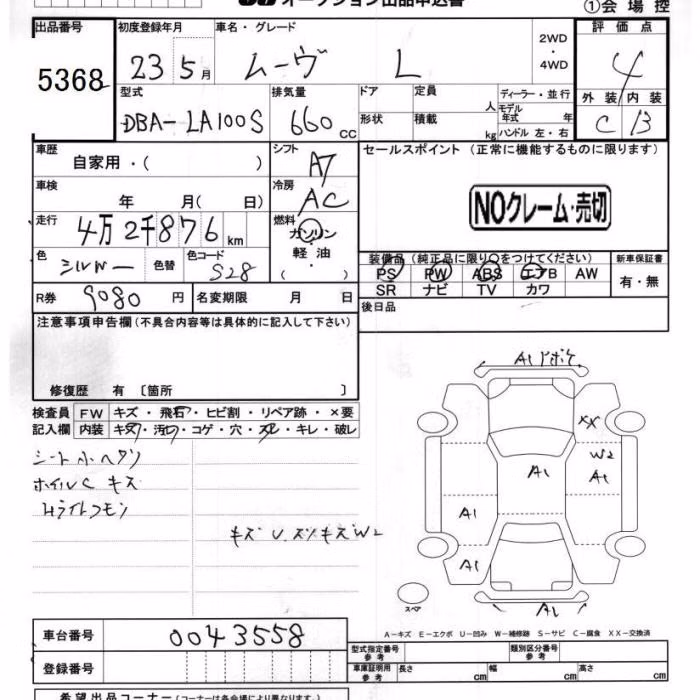 オークション出品申込書
①会場控
出品番号 初度登録年月 車名・グレード 2WD・4WD 評価点
5368 23 5月 ムーヴ L 4
型式 排気量 ドア 定員 人 ディーラー・並行 外装 内装
DBA-LA100S 660 CC 形状 積載 kg モデル年式 年 ハンドル 左・右 C B
車歴 自家用・( ) シフト AT セールスポイント (正常に機能するものに限ります)
車検 年 月( 日) 冷房 AC NOクレーム・売切
走行 4万2千876 km 燃料 ガソリン・軽油・( )
装備品(純正品に限り○をつけてください) 新車保証書
色 シルバー 色替 色コード S28 PS PW ABS エアB AW 有・無
SR ナビ TV カワ
R券 9080 円 名変期限 月 日 後日品
注意事項申告欄(不具合内容等は具体的に記入して下さい)
修復歴 有 〔箇所 〕
検査員 FW キズ・飛石・ヒビ割・リペア跡・×要
記入欄 内装 キズ・汚れ・コゲ・穴・スレ・キレ・破レ
シート小ヘタリ
ホイルC キズ
Hライトクモリ
キズ U スリキズ W2
A1 ドボケ
XX
W2
A1
A1
A1
A1
A1
スペア
A-キズ E-エクボ U-凹み W-補修跡 S-サビ C-腐食 XX-交換済
車台番号 0043558
型式指定番号 参考 類別区分番号 参考
登録番号
車庫証明用 参考 長さ cm 幅 cm 高さ cm
希望出品コーナー(コーナーは各会場により異なります。)